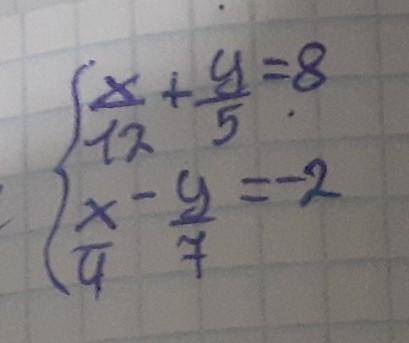 x/12 + y/5 = 8
x/4 - y/7 = -2